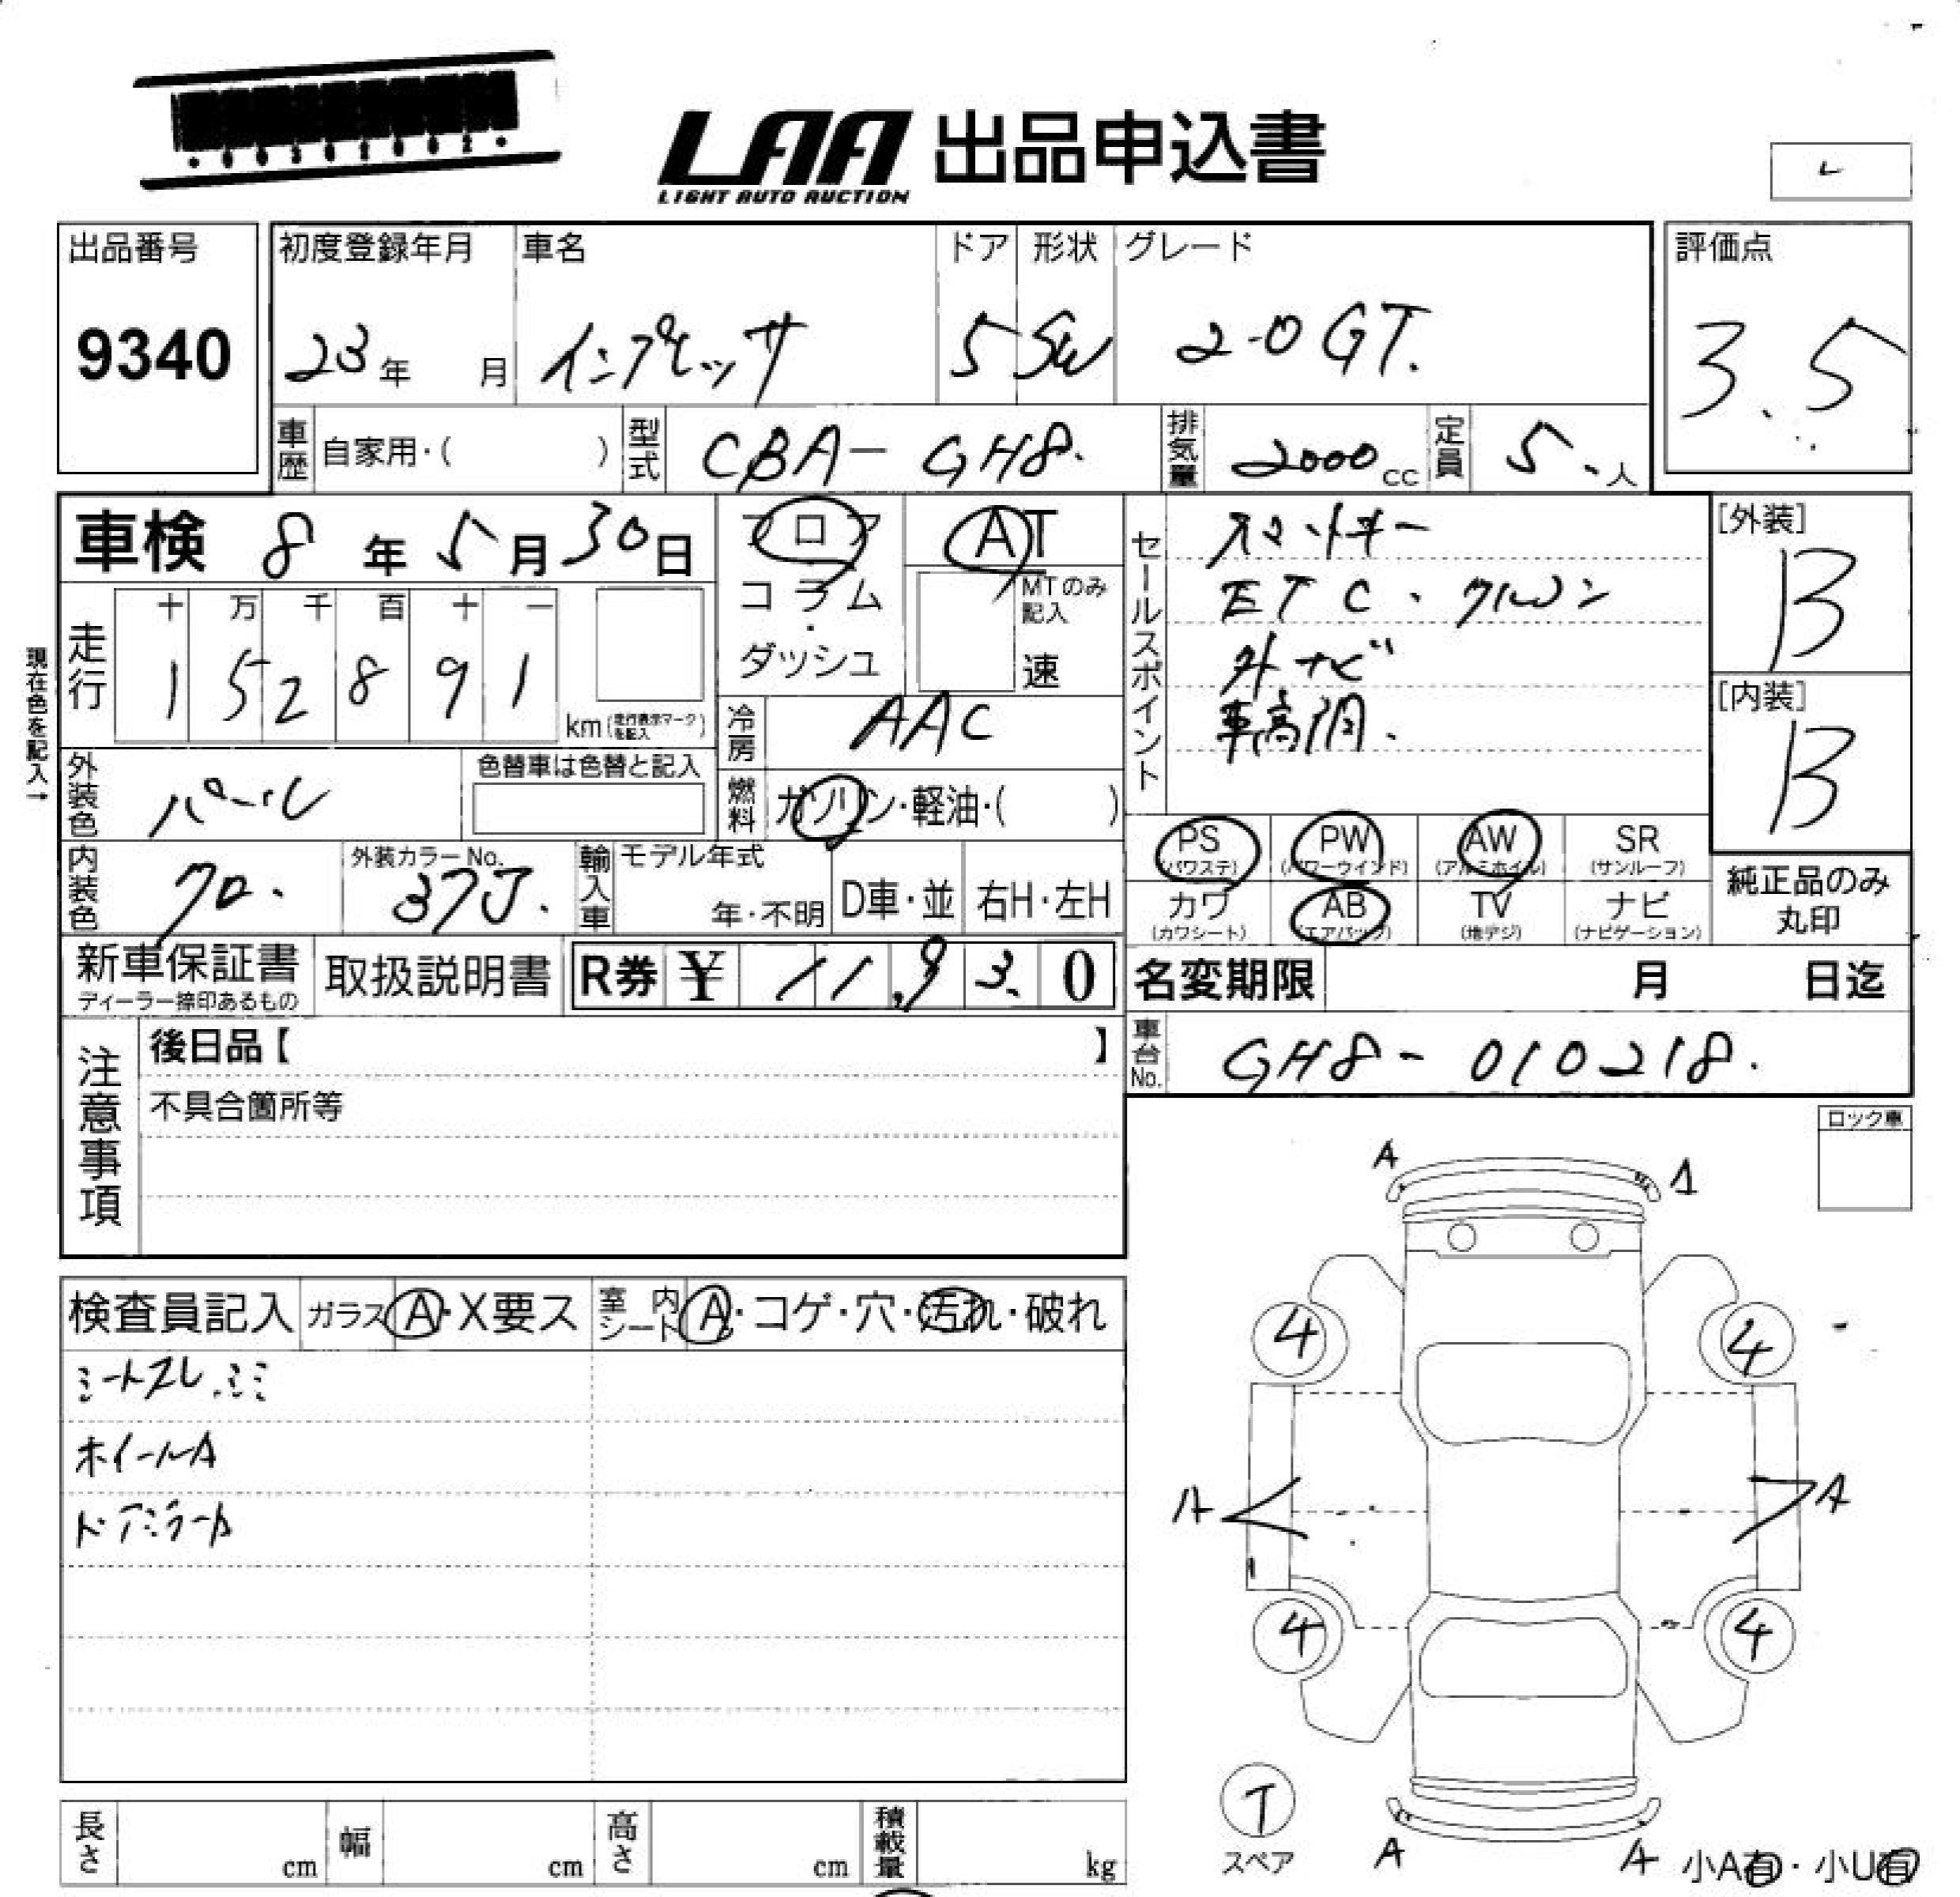 LAA 出品申込書
LIGHT AUTO AUCTION
出品番号
9340
初度登録年月
23年 月
車名
インプレッサ
ドア
5
形状
SW
グレード
2.0GT.
評価点
3.5
車歴 自家用・( )
型式 CBA-GH8.
排気量 2000cc
定員 5.人
車検 8年5月30日
フロア
コラム
・
ダッシュ
AT
MTのみ記入
速
現在色を記入→
走行
十 万 千 百 十 一
1 5 2 8 9 1
km(走行表示マークを記入)
冷房 AAC
燃料 ガソリン・軽油・( )
外装色 パール
色替車は色替と記入
内装色 クロ.
外装カラーNo.
37J.
輸入車
モデル年式
年・不明
D車・並
右H・左H
セールスポイント
スマートキー
ETC.クルコン
外ナビ
車高調.
[外装]
B
[内装]
B
PS (パワステ)
PW (パワーウインド)
AW (アルミホイル)
SR (サンルーフ)
カワ (カワシート)
AB (エアバッグ)
TV (地デジ)
ナビ (ナビゲーション)
純正品のみ
丸印
新車保証書
ディーラー捺印あるもの
取扱説明書
R券 ¥ 11,930
名変期限 月 日迄
車台No. GH8-010218.
注意事項
後日品【 】
不具合箇所等
ロック車
検査員記入
ガラス A・X要ス
室内シート A・コゲ・穴・汚れ・破れ
シートスレ.シミ
ホイールA
ドアミラーA
A
A
4
4
A
A
4
4
T
スペア
A
A
小A有・小U有
長さ cm
幅 cm
高さ cm
積載量 kg